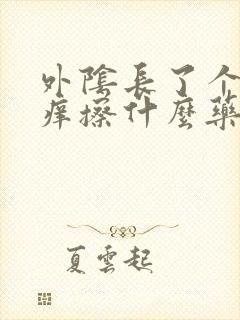 外陰長了个
痒擦什麼藥
夏雲起